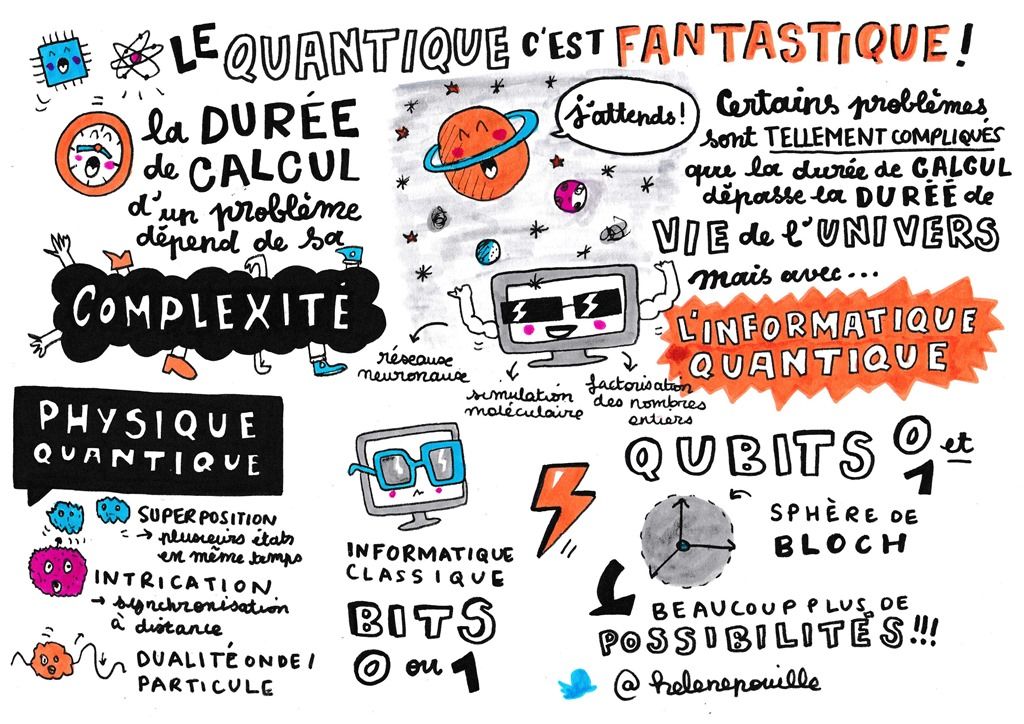 LE QUANTIQUE C'EST FANTASTIQUE !
la DURÉE
de CALCUL
d'un problème
dépend de sa
COMPLEXITÉ
j'attends !
Certains problèmes
sont TELLEMENT COMPLIQUÉS
que la durée de CALCUL
dépasse la DURÉE de
VIE de l'UNIVERS
mais avec...
L'INFORMATIQUE
QUANTIQUE
réseaux
neuronaux
simulation
moléculaire
factorisation
des nombres
entiers
PHYSIQUE
QUANTIQUE
SUPERPOSITION
→ plusieurs états
en même temps
INTRICATION
→ synchronisation
à distance
DUALITÉ ONDE /
PARTICULE
INFORMATIQUE
CLASSIQUE
BITS
0 ou 1
QUBITS 0 et
1
SPHÈRE DE
BLOCH
BEAUCOUP PLUS DE
POSSIBILITÉS !!!
@helenepouille